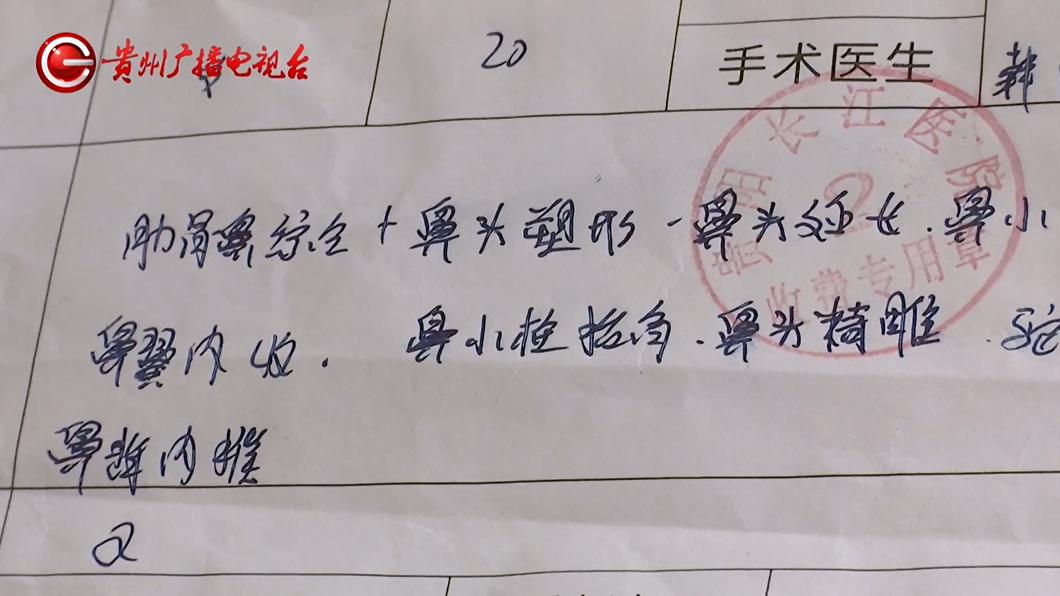 贵州广播电视台
20
手术医生
韩
贵阳长江医院
2
收费专用章
肋骨鼻综合+鼻头塑形-鼻头延长.鼻小
鼻翼内收. 鼻小柱抬高.鼻头精雕.驼
鼻 内推